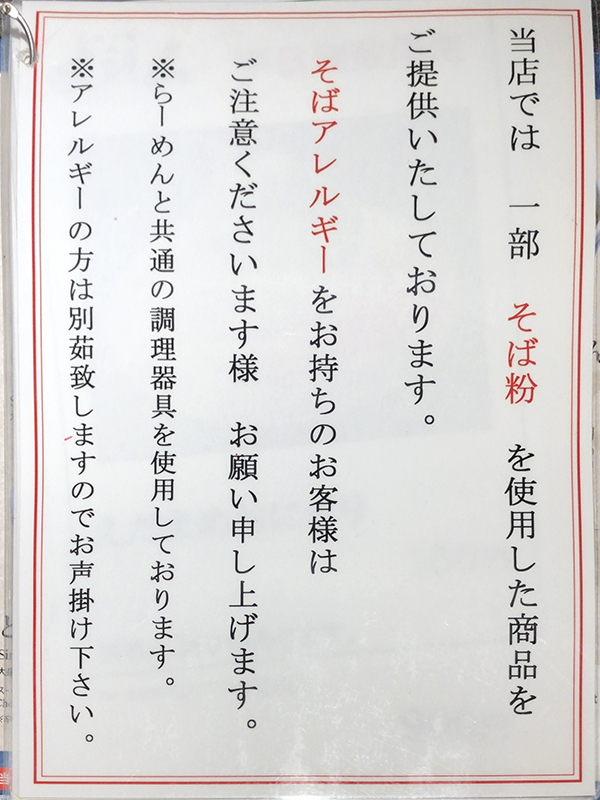 当店では　一部　そば粉　を使用した商品を
ご提供いたしております。
そばアレルギーをお持ちのお客様は
ご注意くださいます様　お願い申し上げます。
※らーめんと共通の調理器具を使用しております。
※アレルギーの方は別茹致しますのでお声掛け下さい。